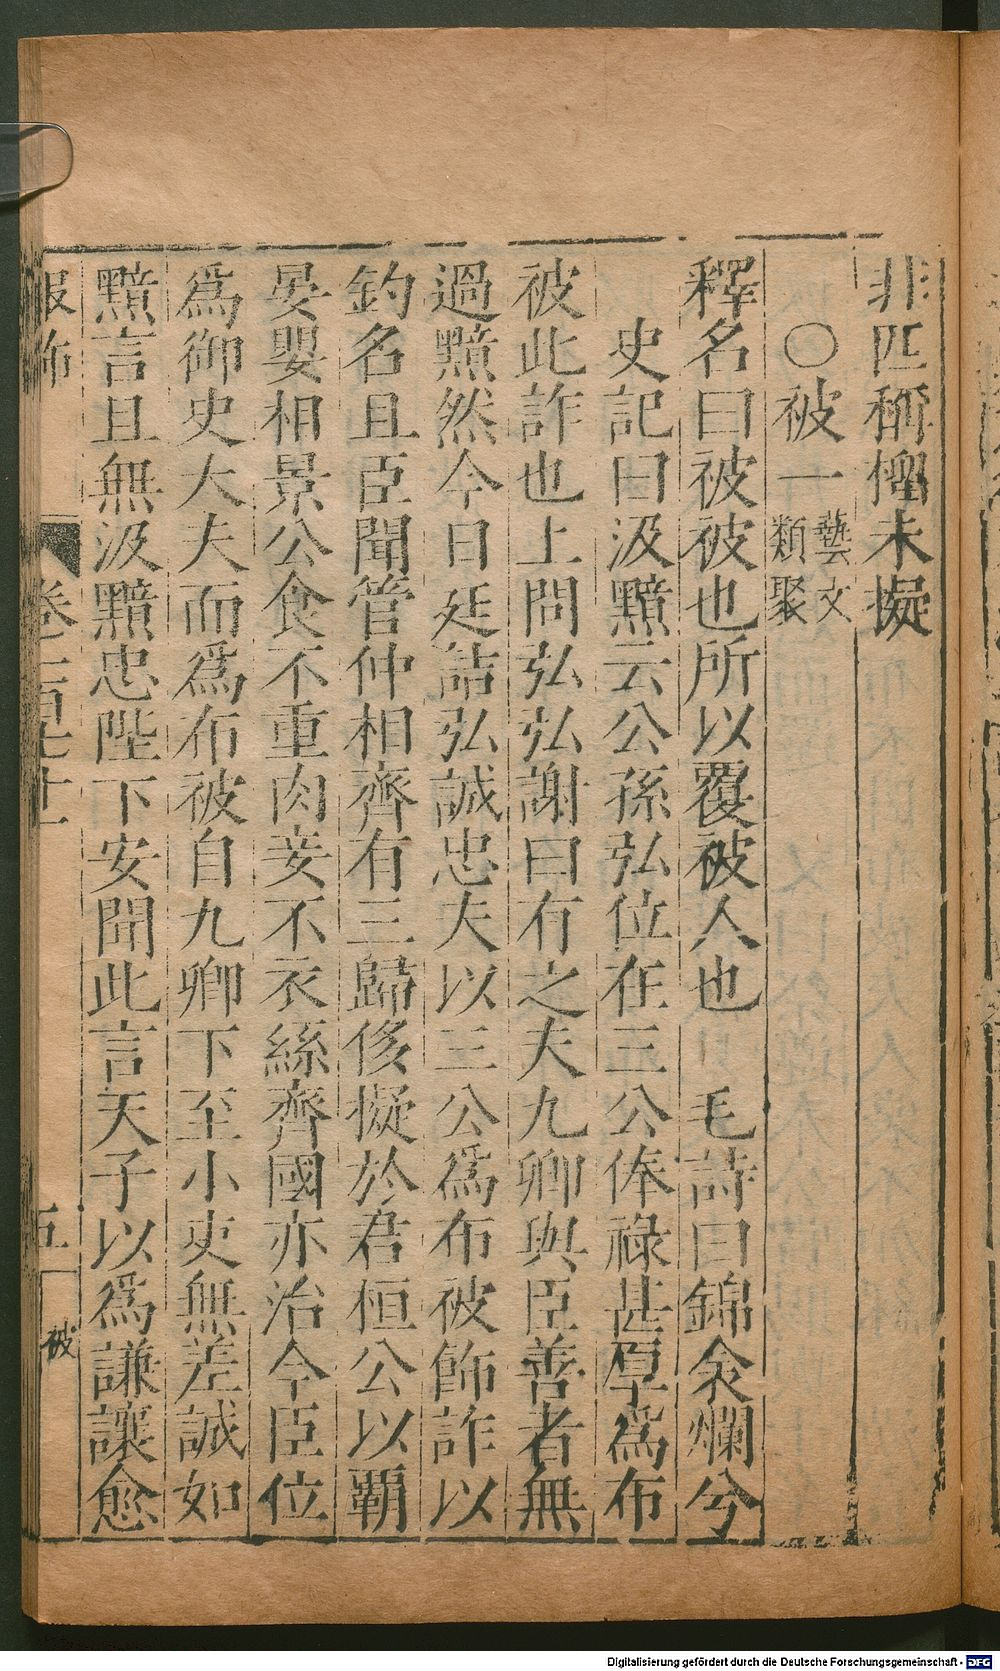 非匹稱㮰未擬
○被一藝文類聚
釋名曰被被也所以覆被人也　毛詩曰錦衾爛兮
史記曰汲黯云公孫弘位在三公俸祿甚厚爲布
被此詐也上問弘弘謝曰有之夫九卿與臣善者無
過黯然今日廷詰弘誠忠夫以三公爲布被飾詐以
釣名且臣聞管仲相齊有三歸侈擬於君桓公以覇
晏嬰相景公食不重肉妾不衣絲齊國亦治今臣位
爲御史大夫而爲布被自九卿下至小吏無差誠如
黯言且無汲黯忠陛下安聞此言天子以爲謙讓愈
服飾
五
被
Digitalisierung gefördert durch die Deutsche Forschungsgemeinschaft - DFG